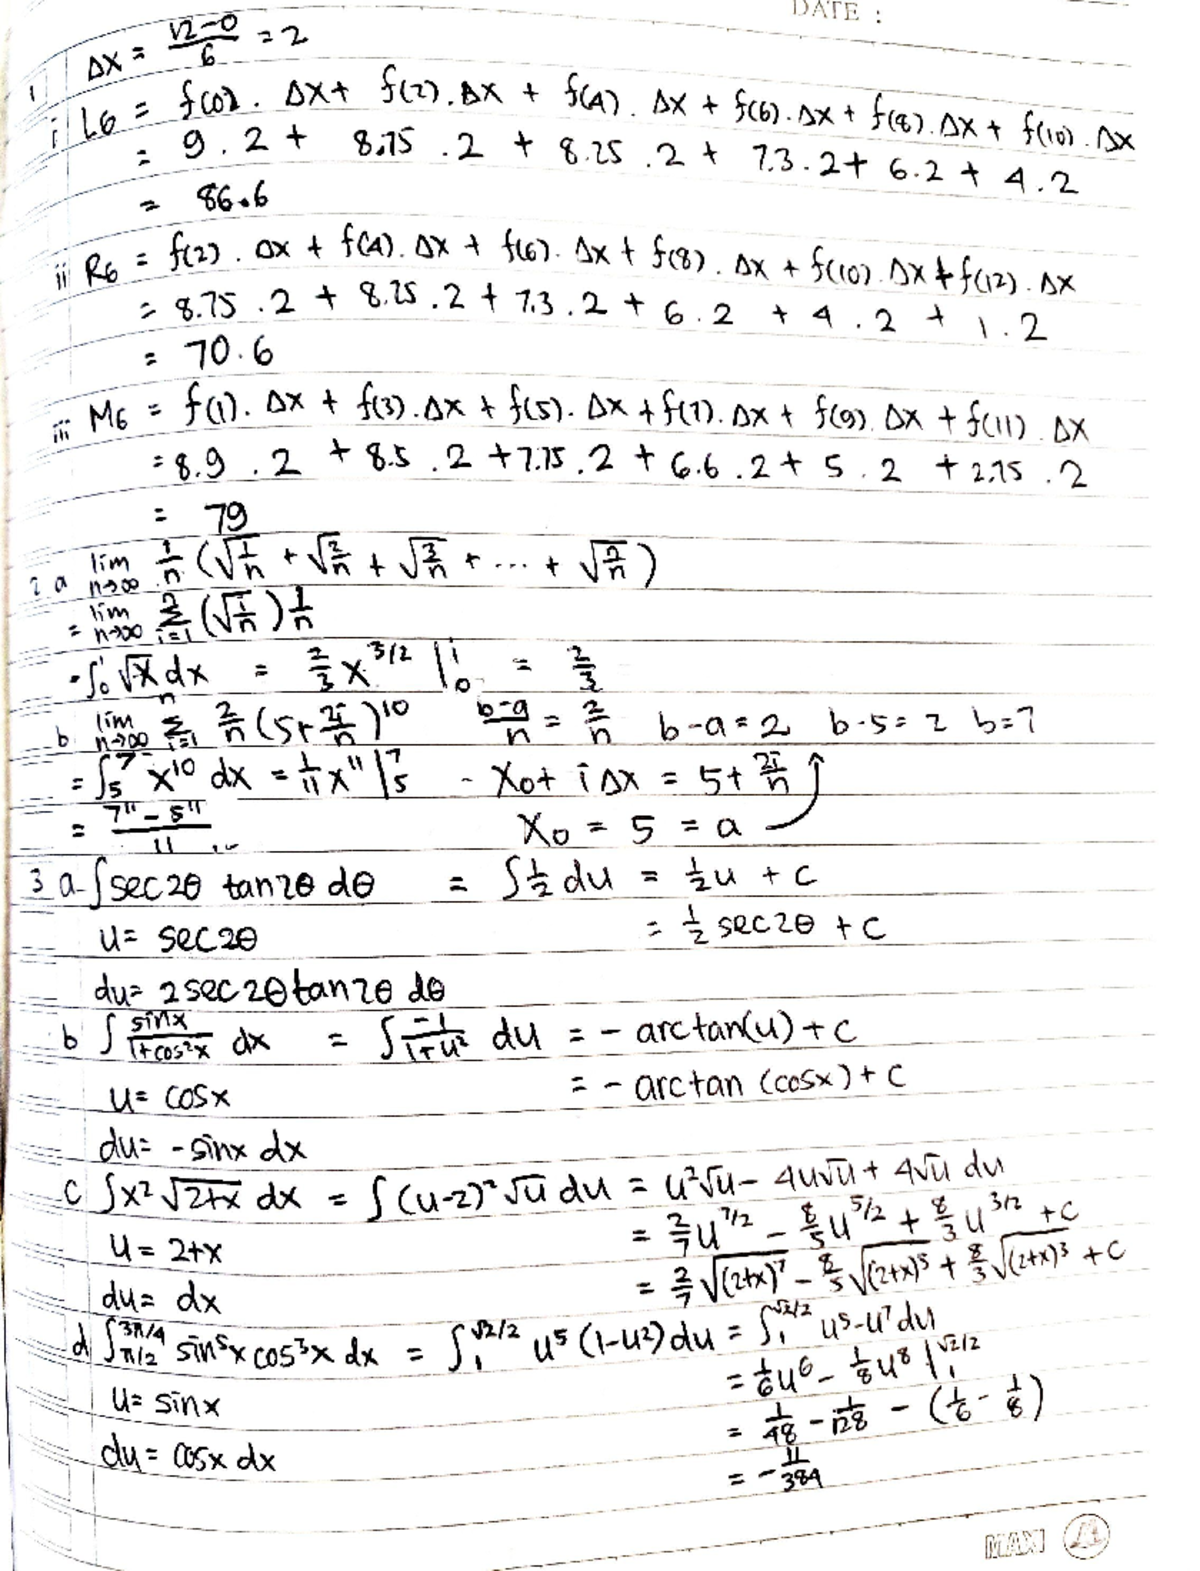 DATE :
1 Δx = (12-0)/6 = 2
i L6 = f(0). Δx + f(2). Δx + f(4). Δx + f(6). Δx + f(8). Δx + f(10). Δx
= 9 . 2 + 8.75 . 2 + 8.25 . 2 + 7.3 . 2 + 6.2 + 4.2
= 86.6
ii R6 = f(2). Δx + f(4). Δx + f(6). Δx + f(8). Δx + f(10). Δx + f(12). Δx
= 8.75 . 2 + 8.25 . 2 + 7.3 . 2 + 6 . 2 + 4 . 2 + 1 . 2
= 70.6
iii M6 = f(1). Δx + f(3). Δx + f(5). Δx + f(7). Δx + f(9). Δx + f(11). Δx
= 8.9 . 2 + 8.5 . 2 + 7.75 . 2 + 6.6 . 2 + 5 . 2 + 2.75 . 2
= 79
2 a lim n→∞ 1/n (√(1/n) + √(2/n) + √(3/n) + ... + √(n/n))
= lim n→∞ Σ i=1 n (√(i/n)) 1/n
= ∫₀¹ √x dx = 2/3 x^3/2 |₀¹ = 2/3
b lim n→∞ Σ i=1 n 2/n (5+2i/n)^10 (b-a)/n = 2/n b-a = 2 b-5 = 2 b=7
= ∫₅⁷ x^10 dx = 1/11 x^11 |₅⁷ - x₀ + i Δx = 5 + 2i/n
= (7^11 - 5^11)/11 x₀ = 5 = a
3 a. ∫ sec2θ tan2θ dθ = ∫ 1/2 du = 1/2 u + c
u = sec2θ = 1/2 sec2θ + c
du = 2 sec2θ tan2θ dθ
b ∫ sinx/(1+cos²x) dx = ∫ -1/(1+u²) du = - arctan(u) + c
u = cosx = - arctan (cosx) + c
du = - sinx dx
c ∫x² √(2+x) dx = ∫ (u-2)² √u du = u²√u - 4u√u + 4√u du
u = 2+x = 2/7 u^7/2 - 8/5 u^5/2 + 8/3 u^3/2 + c
du = dx = 2/7 √(2+x)^7 - 8/5 √(2+x)^5 + 8/3 √(2+x)^3 + c
d ∫ π/2 3π/4 sin⁵x cos³x dx = ∫ 1 √2/2 u⁵ (1-u²) du = ∫ 1 √2/2 u⁵ - u⁷ du
u = sinx = 1/6 u⁶ - 1/8 u⁸ | 1 √2/2
du = cosx dx = 1/48 - 1/128 - (1/6 - 1/8)
= - 11/384
MAXI